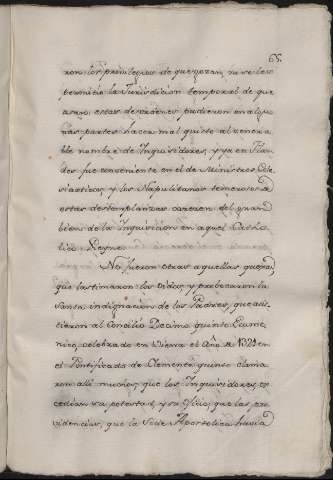 65.
ron los privilegios de que gozan, ni se les
permitio la Jurisdicion temporal de que
usan: estas desordenes pudieron en algu-
nas partes hacer mal quisto al venera-
ble nombre de Inquisidores, y ya en Flan-
des fue conveniente en el de Ministros Ecle-
siasticos, y los Napolitanos temerosos a
estas destemplanzas carecen del gran
bien de la Inquisicion en aquel Catho-
lico Reyno.
No fueron otras aquellas quexas
que lastimaron los oidos, y probocaron la
Santa indignacion de los Padres, que asis-
tieron al Concilio Decimo quinto Ecume-
nico, celebrado en Viena el Año de
el Pontificado de Clemente quinto: clama-
ron alli muchos, que los Inquisidores ex-
cedian su potestad, y su oficio, que las pro-
videncias, que la Sede Apostolica havia